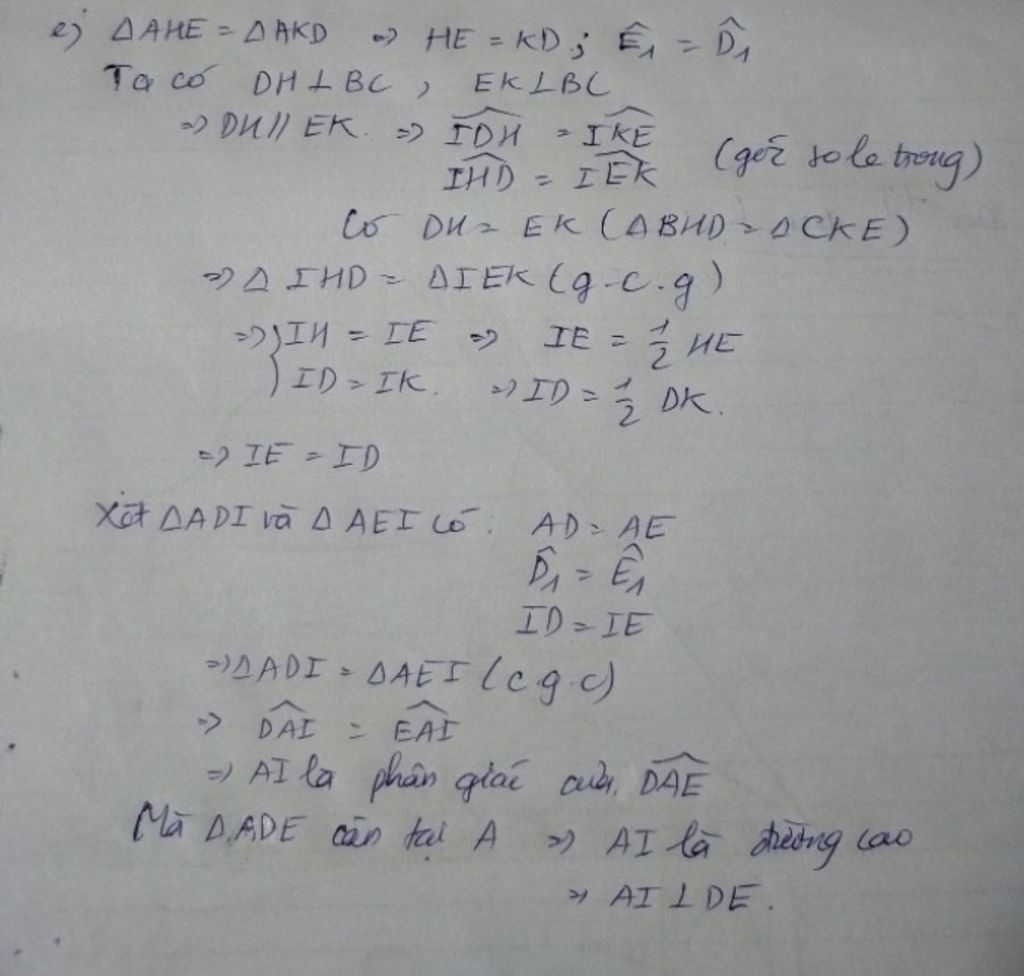 e) ΔAHE = ΔAKD => HE = KD ; Ê₁ = D̂₁
Ta có DH ⊥ BC , EK ⊥ BC
=> DH // EK. => \widehat{IDH} = \widehat{IKE}
\widehat{IHD} = \widehat{IEK} (góc so le trong)
Có DH = EK (ΔBHD = ΔCKE)
=> Δ IHD = ΔIEK (g-c.g)
=> } IH = IE => IE = 1/2 HE
ID = IK. => ID = 1/2 DK.
=> IE = ID
Xét ΔADI và Δ AEI có: AD = AE
D̂₁ = Ê₁
ID = IE
=> ΔADI = ΔAEI (c g.c)
=> \widehat{DAI} = \widehat{EAI}
=> AI là phân giác của \widehat{DAE}
Mà Δ.ADE cân tại A => AI là đường cao
=> AI ⊥ DE.